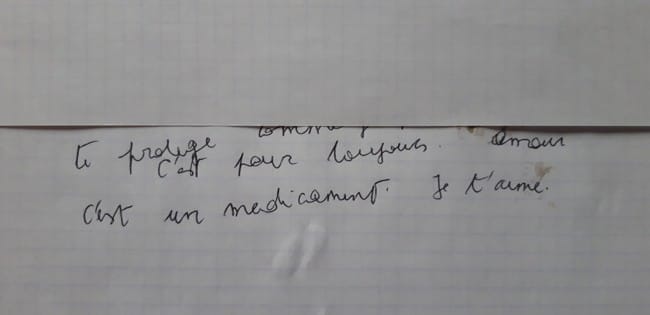 te protege
c'est pour toujours. amour
c'est un medicament. Je t'aime.